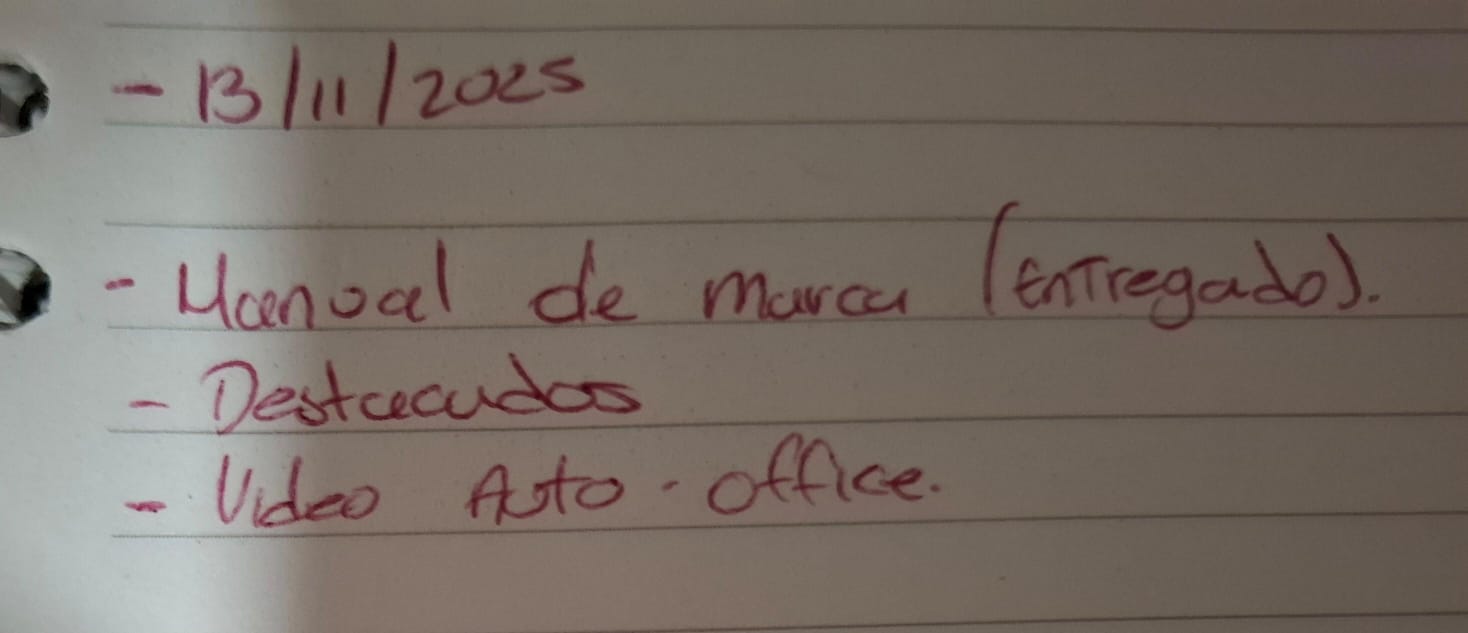 - 13/11/2025
- Manual de marca (Entregado).
- Destacados
- Video Auto - office.